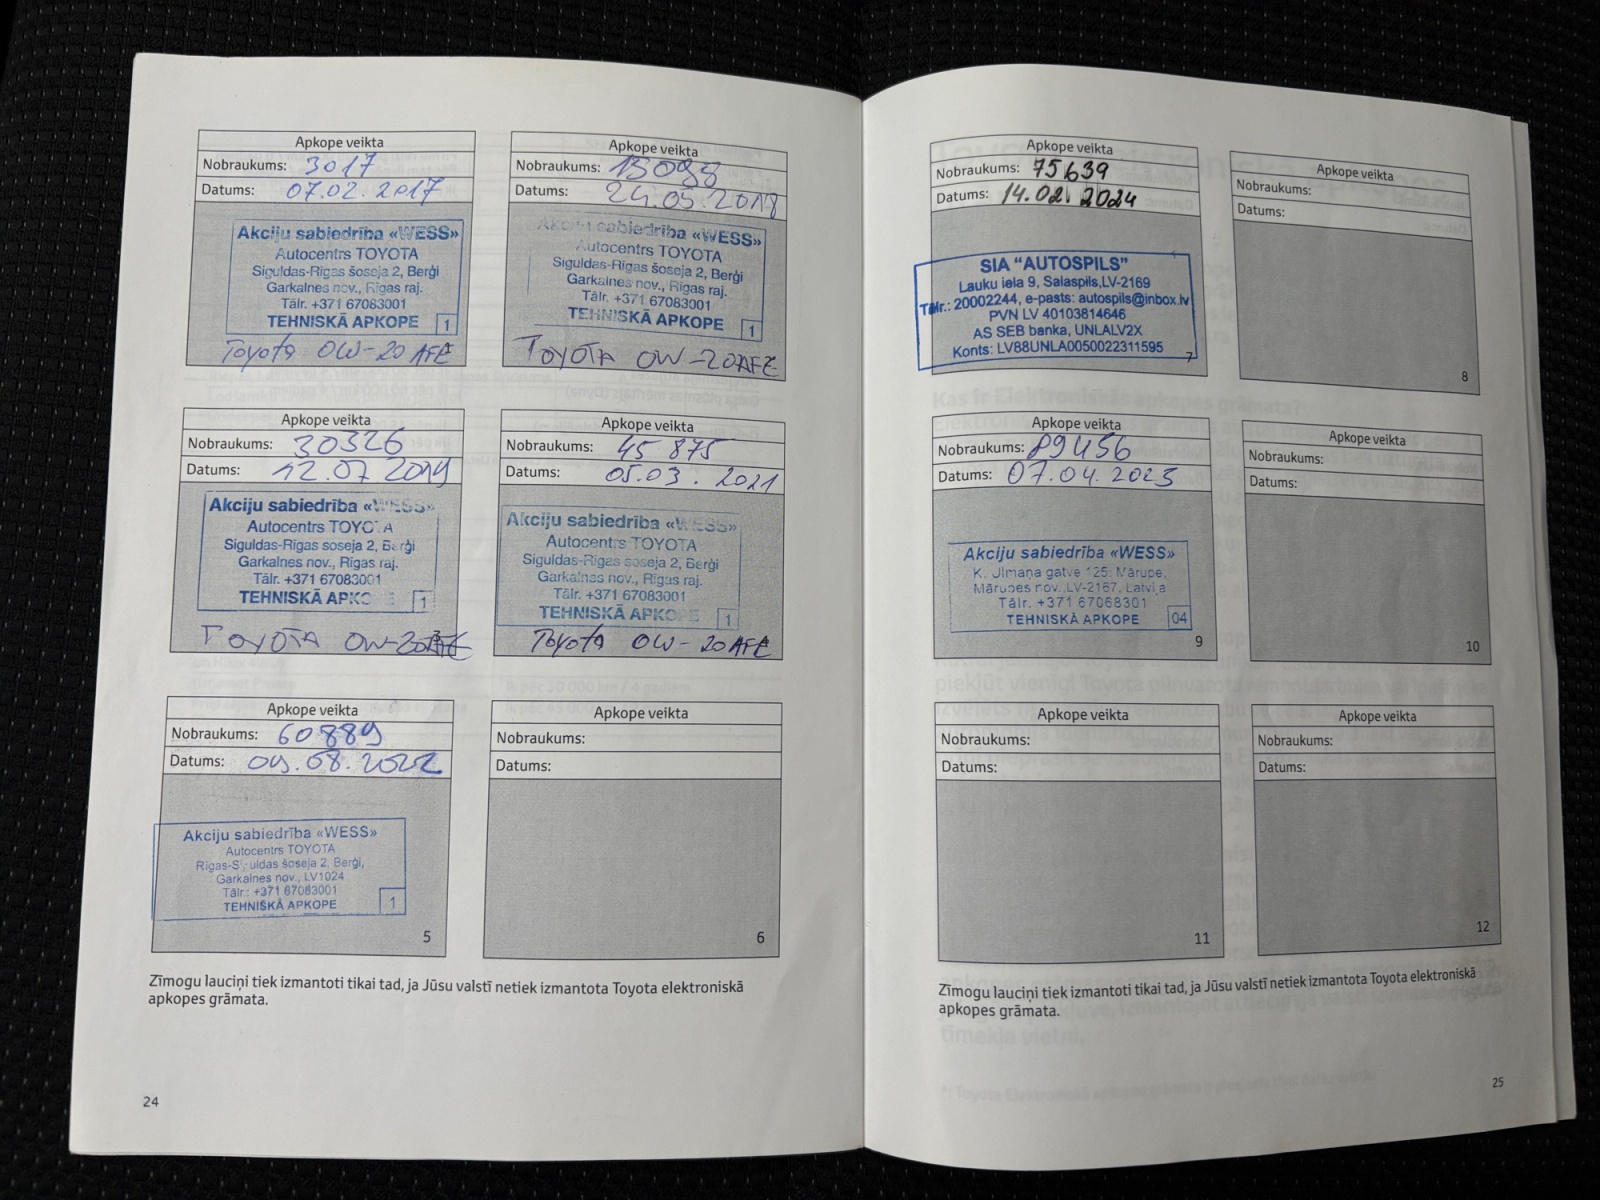 Apkope veikta
Nobraukums: 3017
Datums: 07.02.2017
Akciju sabiedrība «WESS»
Autocentrs TOYOTA
Siguldas-Rīgas šoseja 2, Berģi
Garkalnes nov., Rīgas raj.
Tālr. +371 67083001
TEHNISKĀ APKOPE 1
Toyota OW-20 AFE
Apkope veikta
Nobraukums: 15098
Datums: 24.05.2018
Akciju sabiedrība «WESS»
Autocentrs TOYOTA
Siguldas-Rīgas šoseja 2, Berģi
Garkalnes nov., Rīgas raj.
Tālr. +371 67083001
TEHNISKĀ APKOPE 1
TOYOTA OW-20AFE
Apkope veikta
Nobraukums: 30326
Datums: 12.07.2019
Akciju sabiedrība «WESS»
Autocentrs TOYOTA
Siguldas-Rīgas šoseja 2, Berģi
Garkalnes nov., Rīgas raj.
Tālr. +371 67083001
TEHNISKĀ APKOPE 1
TOYOTA OW-20AFE
Apkope veikta
Nobraukums: 45 875
Datums: 05.03.2021
Akciju sabiedrība «WESS»
Autocentrs TOYOTA
Siguldas-Rīgas šoseja 2, Berģi
Garkalnes nov., Rīgas raj.
Tālr. +371 67083001
TEHNISKĀ APKOPE 1
Toyota OW-20AFE
Apkope veikta
Nobraukums: 60889
Datums: 09.08.2022
Akciju sabiedrība «WESS»
Autocentrs TOYOTA
Rīgas-Siguldas šoseja 2, Berģi,
Garkalnes nov., LV1024
Tālr.: +371 67083001
TEHNISKĀ APKOPE 1
5
Apkope veikta
Nobraukums:
Datums:
6
Zīmogu lauciņi tiek izmantoti tikai tad, ja Jūsu valstī netiek izmantota Toyota elektroniskā
apkopes grāmata.
24
Apkope veikta
Nobraukums: 75639
Datums: 14.02.2024
SIA "AUTOSPILS"
Lauku iela 9, Salaspils,LV-2169
Tālr.: 20002244, e-pasts: autospils@inbox.lv
PVN LV 40103814646
AS SEB banka, UNLALV2X
Konts: LV88UNLA0050022311595
7
Apkope veikta
Nobraukums:
Datums:
8
Apkope veikta
Nobraukums: 89456
Datums: 07.04.2025
Akciju sabiedrība «WESS»
K. Ulmaņa gatve 125, Mārupe,
Mārupes nov., LV-2167, Latvija
Tālr. +371 67068301
TEHNISKĀ APKOPE 04
9
Apkope veikta
Nobraukums:
Datums:
10
Apkope veikta
Nobraukums:
Datums:
11
Apkope veikta
Nobraukums:
Datums:
12
Zīmogu lauciņi tiek izmantoti tikai tad, ja Jūsu valstī netiek izmantota Toyota elektroniskā
apkopes grāmata.
25